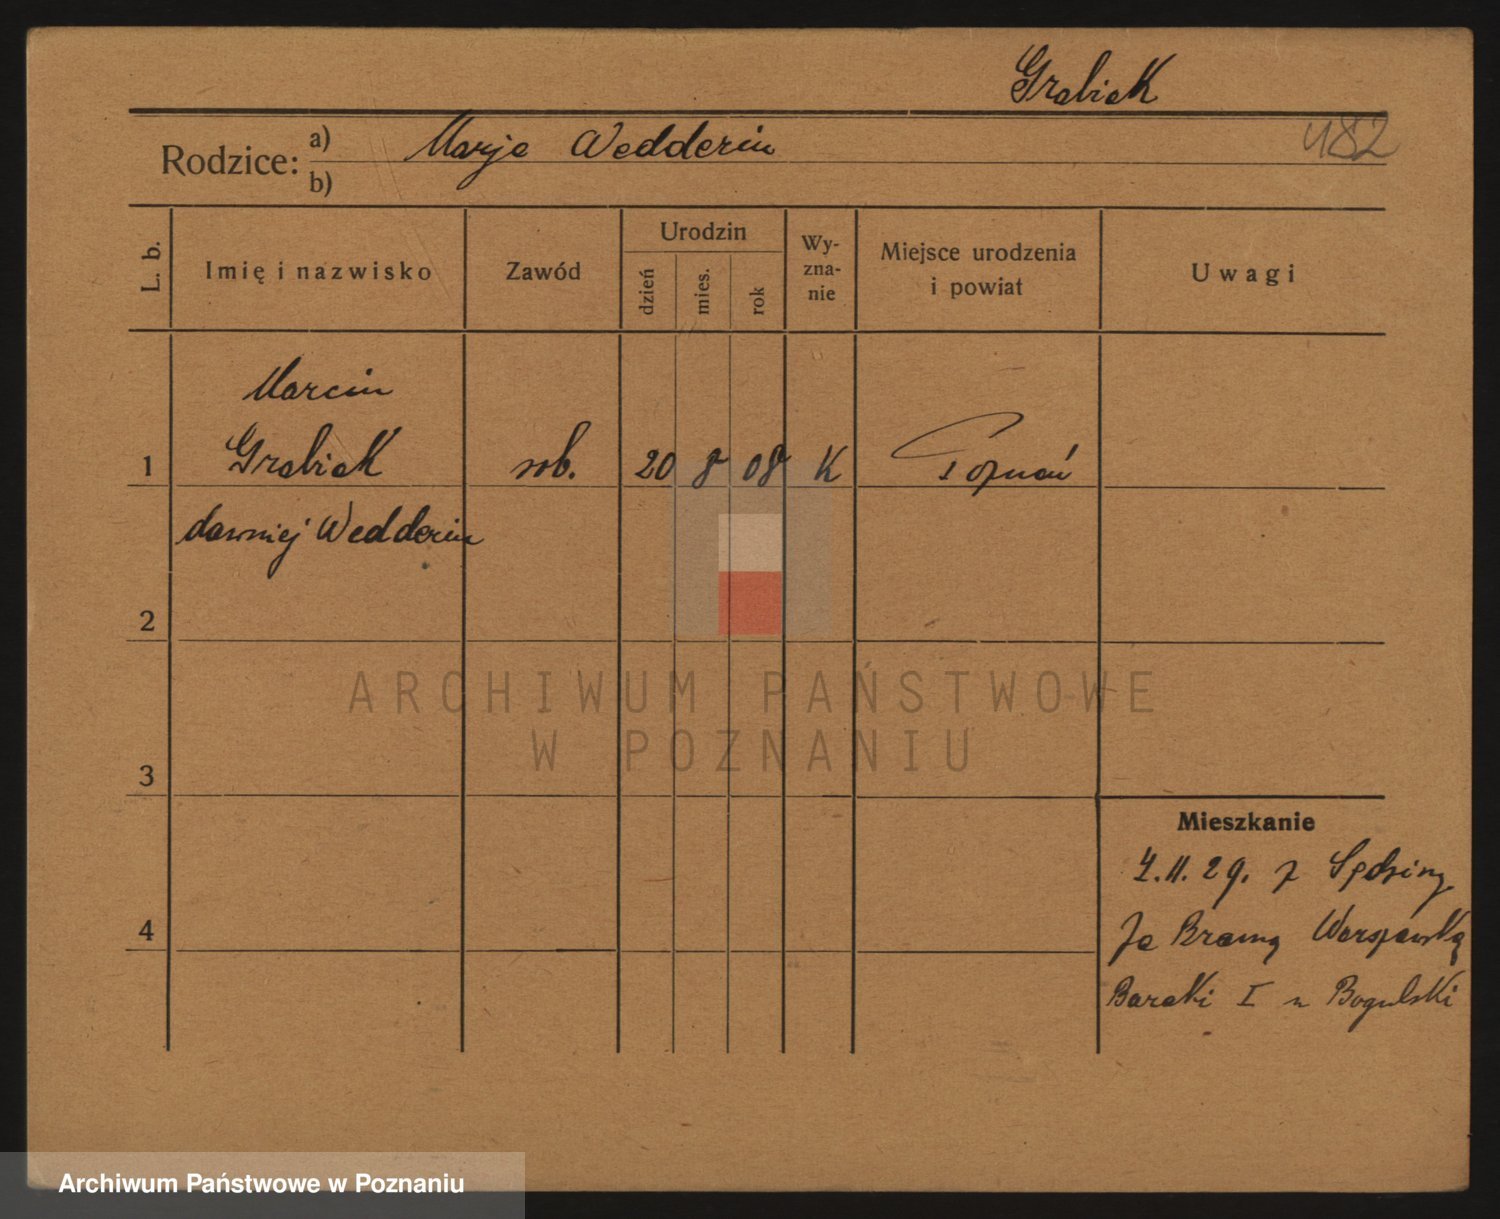 Grabiak
482
Rodzice:
a) Marja Wedderin
b)
L. b.
Imię i nazwisko
Zawód
Urodzin
dzień
mies.
rok
Wy-
zna-
nie
Miejsce urodzenia
i powiat
Uwagi
Marcin
1 Grabiak rob. 20 8 08 K Poznań
dawniej Wedderin
2
ARCHIWUM PAŃSTWOWE
W POZNANIU
3
Mieszkanie
4.11.29. z
4
Za Bramą Warszawską
Baraki I u Bogulski
Archiwum Państwowe w Poznaniu